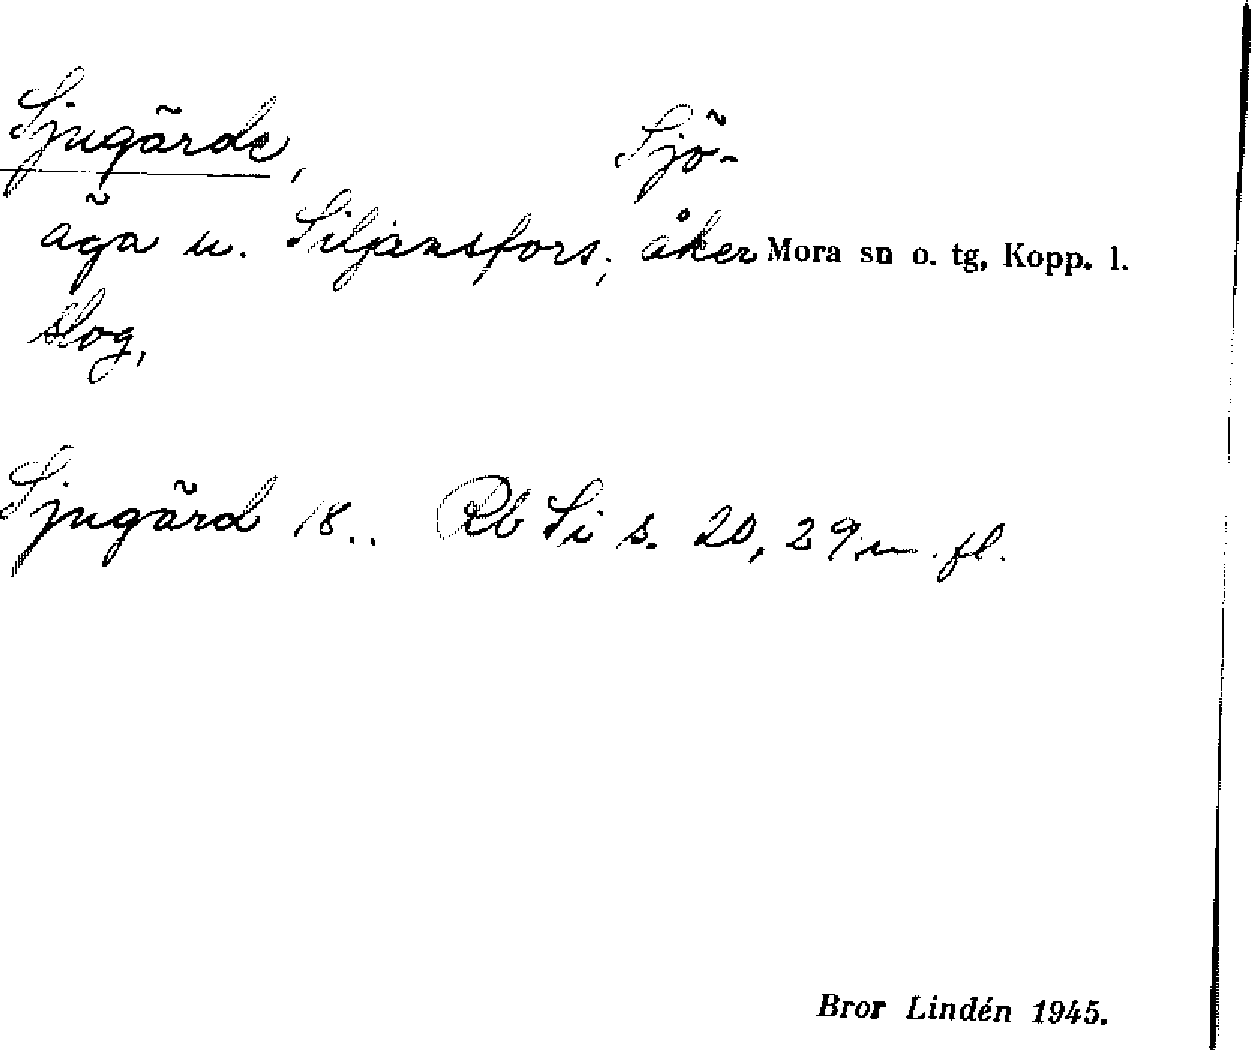 Sjugärde,
Sjö-
äga u. Siljansfors, åker Mora sn o. tg, Kopp. l.
skog,
Sjugärd 18.. Rb Si s. 20, 29 m. fl.
Bror Lindén 1945.